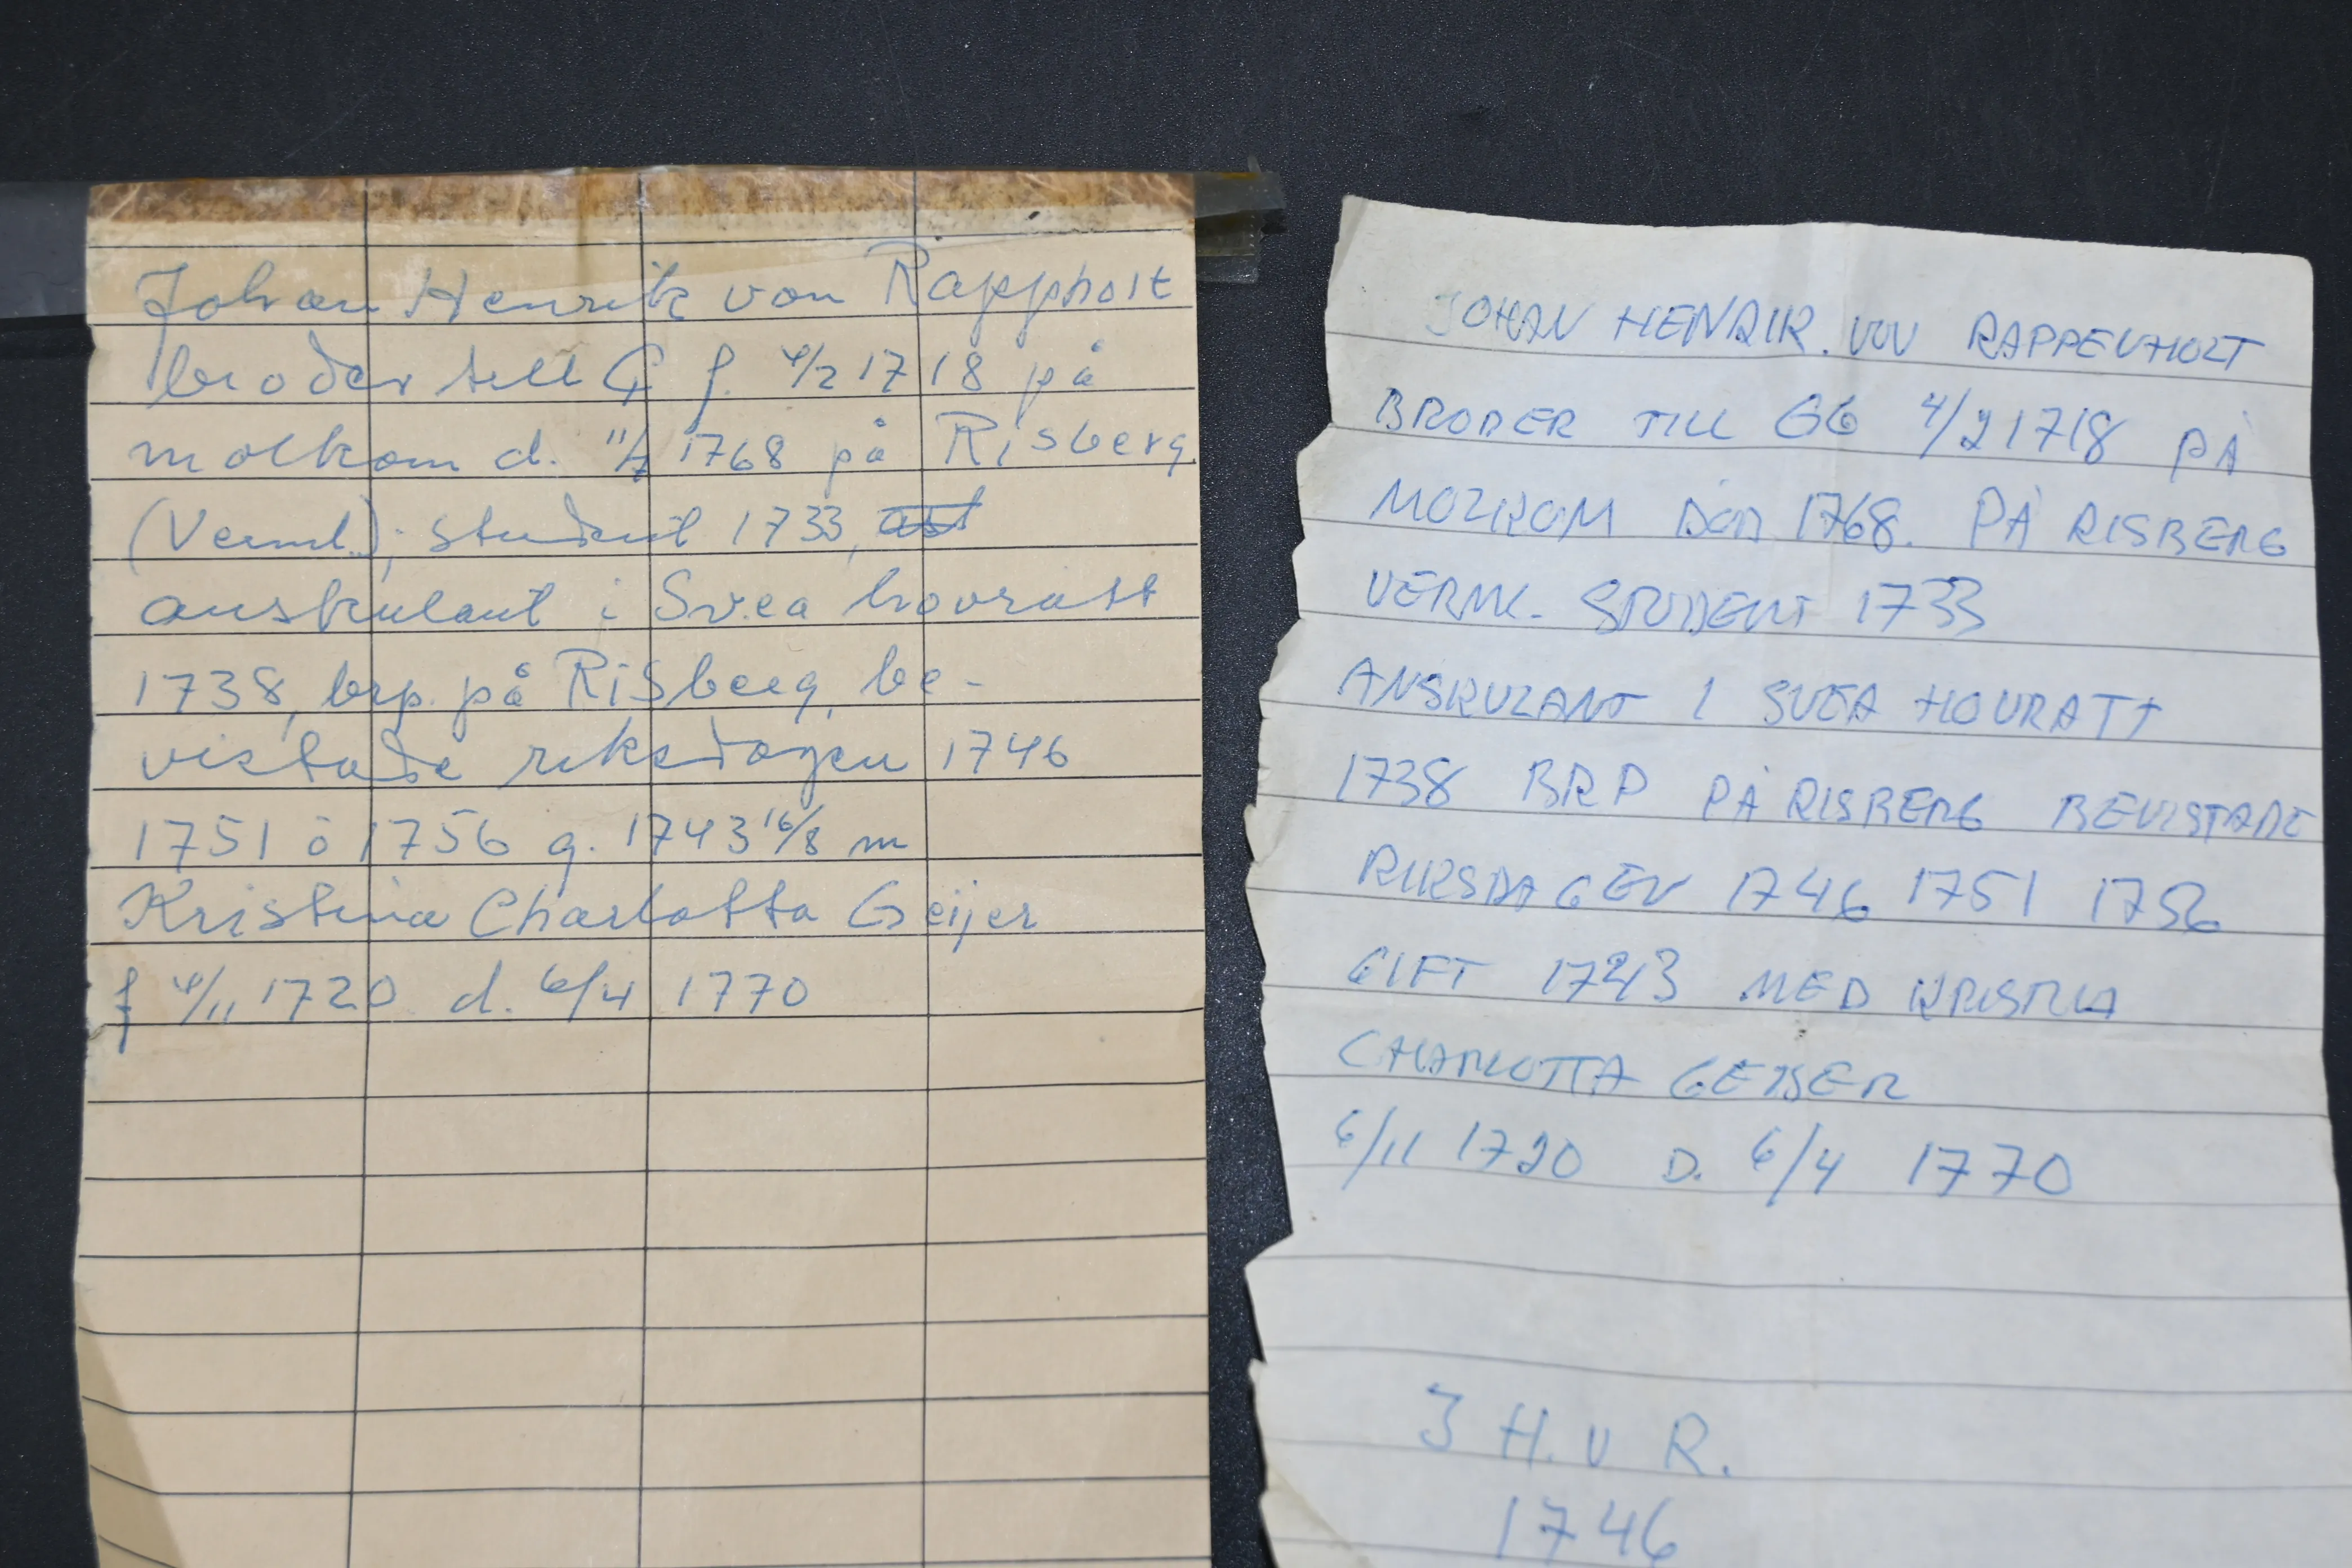 Johan Henrik von Rappholt
broder till G f. 4/2 1718 på
molkom d. 11/7 1768 på Risberg
(Verml.); student 1733,
auskulant i Svea hovrätt
1738, brp. på Risberg, be-
vistade riksdagen 1746
1751 o 1756 g. 1743 16/8 m
Kristina Charlotta Geijer
f 4/11 1720 d. 6/4 1770
JOHAN HENRIK. VON RAPPENHOLT
BRODER TILL GG 4/2 1718 PÅ
MOLKOM DÖD 1768. PÅ RISBERG
VERML. STUDENT 1733
ANSKULANT I SVEA HOVRATT
1738 BRP PÅ RISBERG BEVISTADE
RIKSDAGEN 1746 1751 1756
GIFT 1743 MED KRISTINA
CHARLOTTA GEIJER
6/11 1720 D. 6/4 1770
J H. v R.
1746